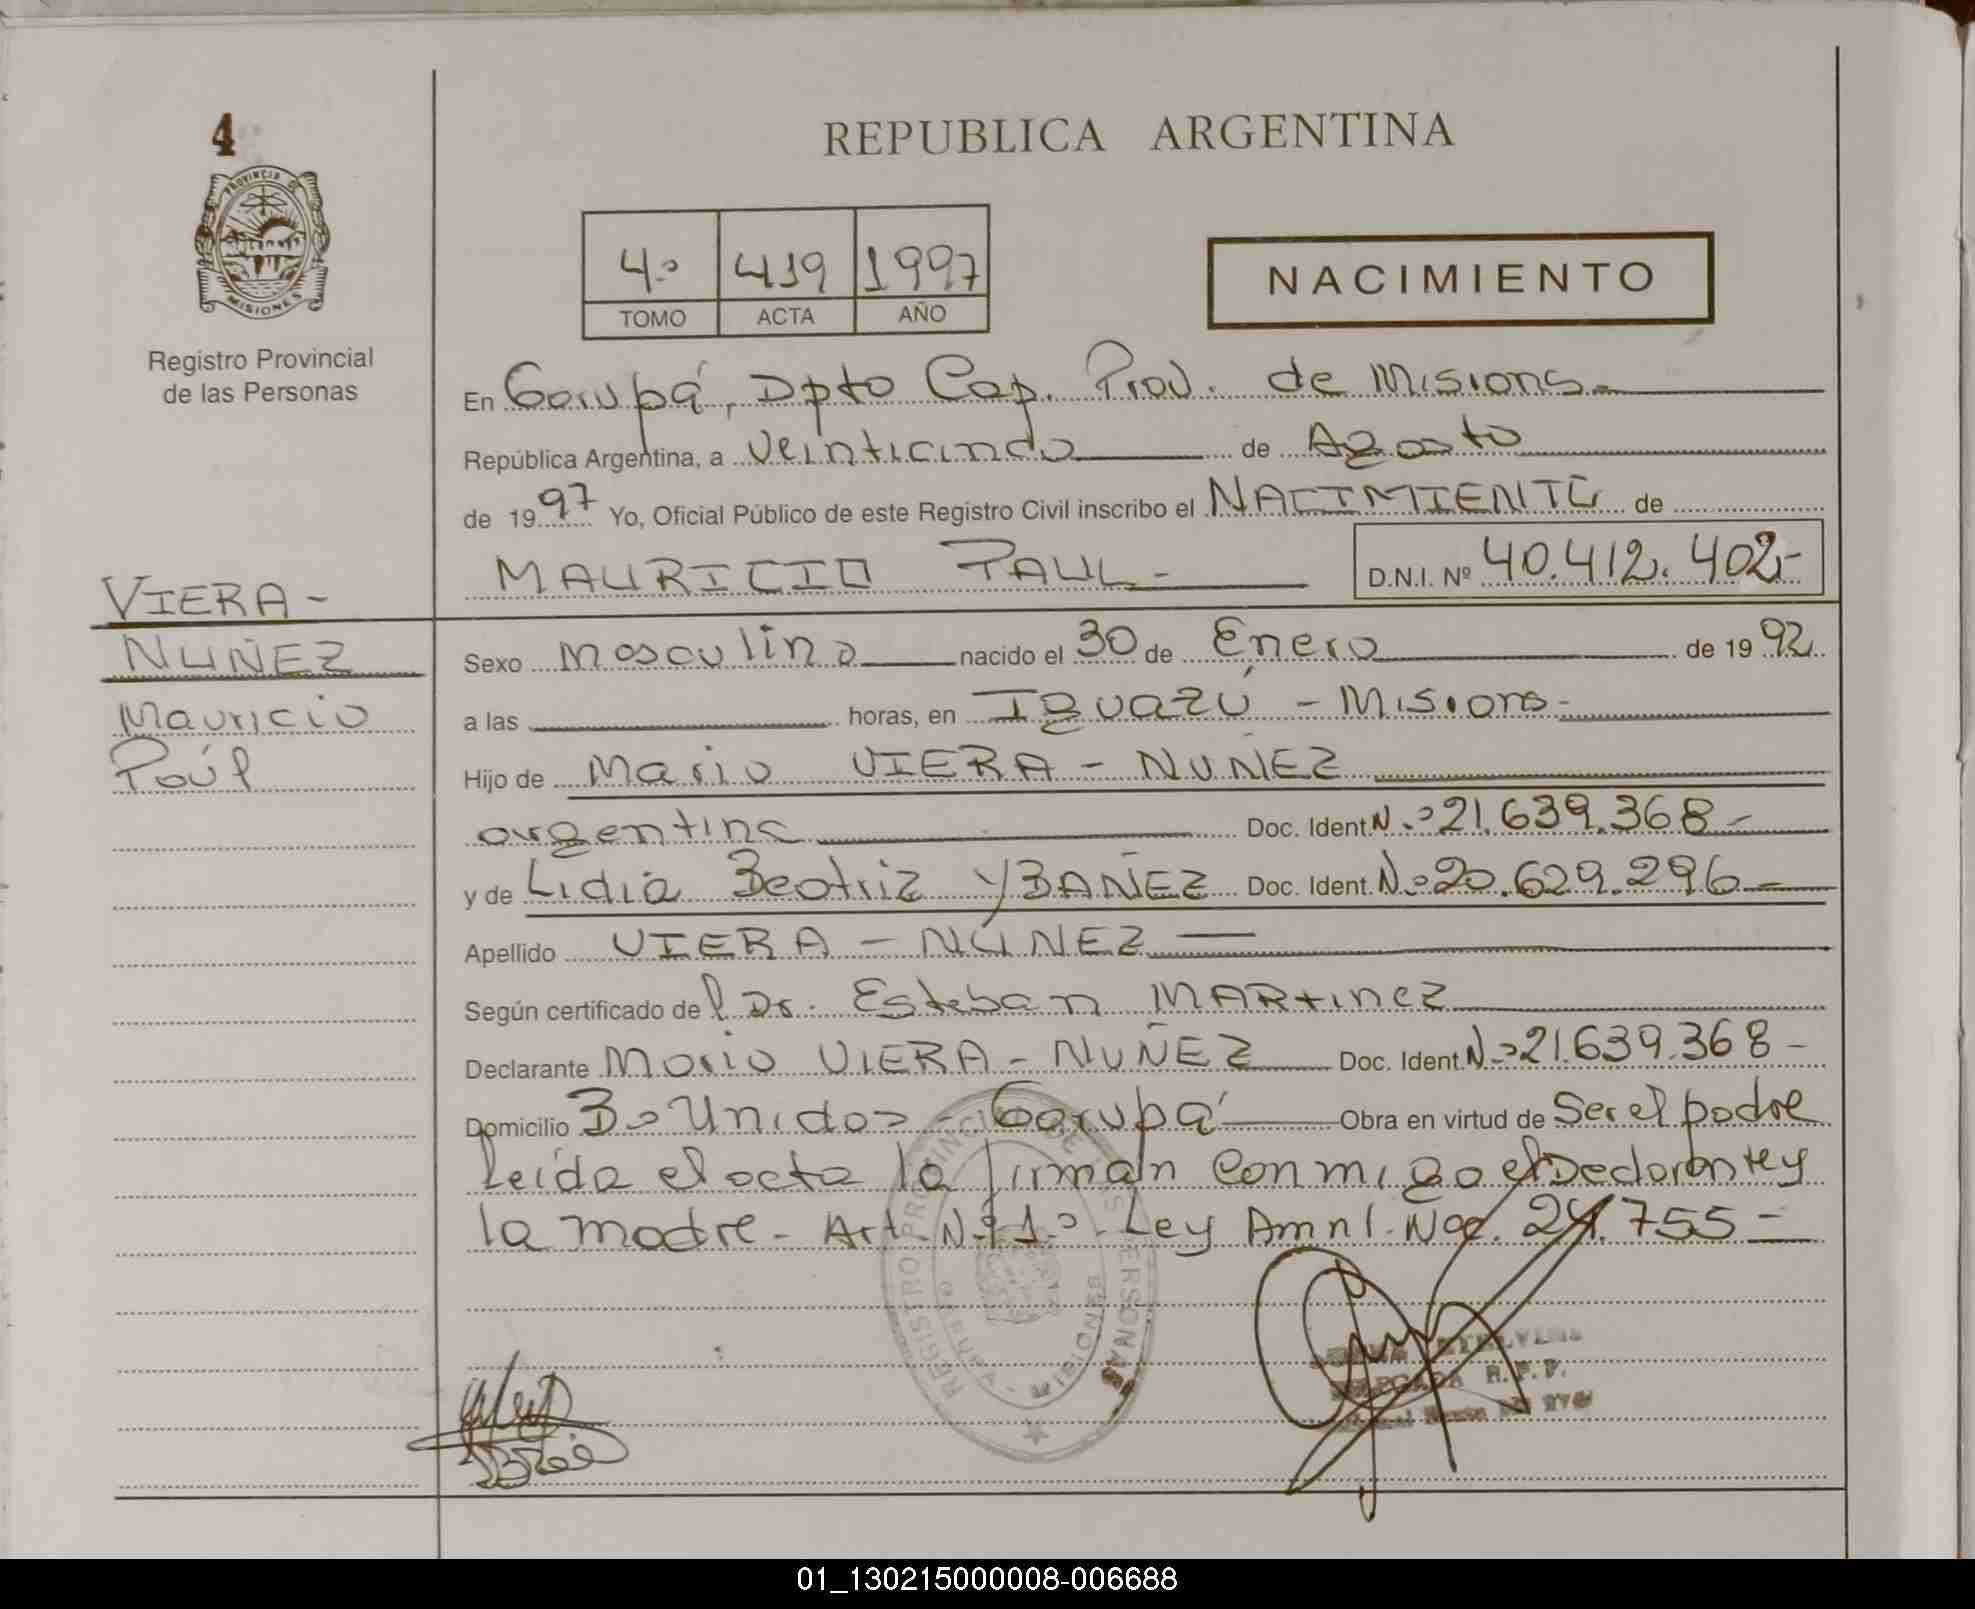 4
PROVINCIA DE
MISIONES
Registro Provincial
de las Personas
VIERA -
NUÑEZ
Mauricio
Paúl
REPUBLICA ARGENTINA
4º 419 1997
TOMO ACTA AÑO
NACIMIENTO
En Garupá, Dpto Cap. Prov. de Misions.-
República Argentina, a Veinticinco de Agosto
de 1997 Yo, Oficial Público de este Registro Civil inscribo el NACIMIENTO de
MAURICIO PAUL - D.N.I. Nº 40.412.402-
Sexo Masculino nacido el 30 de Enero de 1992
a las horas, en Iguazú - Misions -
Hijo de Mario VIERA - NUÑEZ
argentina Doc. Ident. N.º 21.639.368-
y de Lidia Beatriz YBAÑEZ Doc. Ident. N.º 20.629.296-
Apellido VIERA - NUNEZ -
Según certificado de l Dr. Esteban MARtineZ
Declarante Mario VIERA - NUÑEZ Doc. Ident. N.º 21.639.368-
Domicilio Bº Unidos - Garupá Obra en virtud de Ser el padre
Leída el acta la firman conmigo el Declarante y
la madre - Art. Nº 1º - Ley Amnl. Nac. 24.755 -
REGISTRO PROVINCIAL DE LAS PERSONAS
GARUPA - MISIONES
R.P.P.
01_130215000008-006688